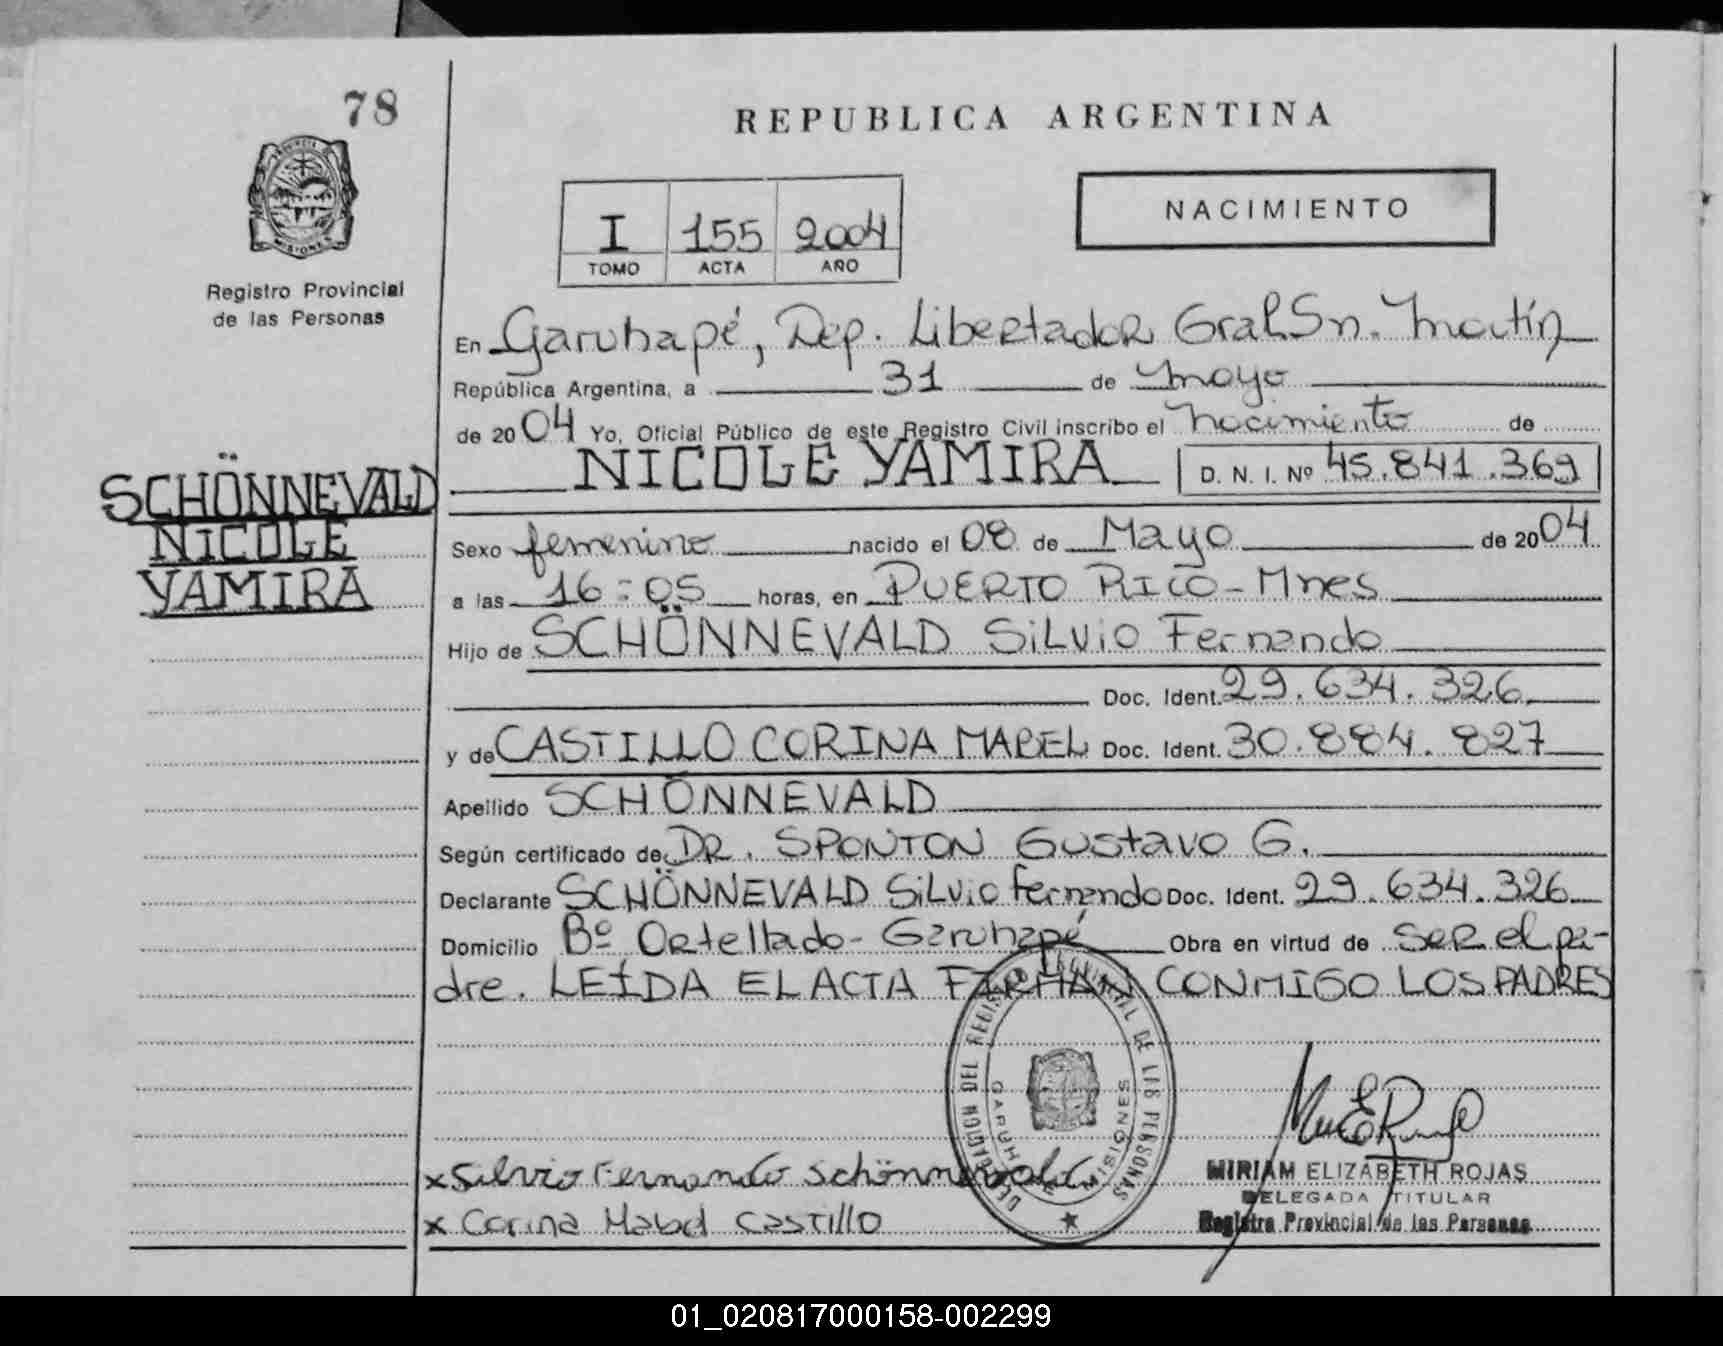 78
REPUBLICA ARGENTINA
PROVINCIA D
MISIONES
Registro Provincial
de las Personas
I 155 2004
TOMO ACTA AÑO
NACIMIENTO
En Garuhapé, Dep. Libertador Gral Sn. Martín
República Argentina, a 31 de Mayo
de 2004 Yo, Oficial Público de este Registro Civil inscribo el nacimiento de
NICOLE YAMIRA D. N. I. Nº 45.841.369
SCHÖNNEVALD
NICOLE
YAMIRA
Sexo femenino nacido el 08 de Mayo de 2004
a las 16:05 horas, en PUERTO RICO-Mnes
Hijo de SCHÖNNEVALD SiLvio Fernando
Doc. Ident. 29.634.326
y de CASTILLO CORINA MABEL Doc. Ident. 30.884.827
Apellido SCHÖNNEVALD
Según certificado de DR. SPONTON Gustavo G.
Declarante SCHÖNNEVALD SiLvio Fernando Doc. Ident. 29.634.326
Domicilio Bº Ortellado- Garuhapé Obra en virtud de SER el pa-
dre. LEÍDA EL ACTA FIRMAN CONMIGO LOS PADRES
DELEGACION DEL REGISTRO PROVINCIAL DE LAS PERSONAS
GARUHAPE MISIONES
MIRIAM ELIZABETH ROJAS
DELEGADA TITULAR
Registro Provincial de las Personas
x Silvio Fernando Schönnevald
x Corina Mabel Castillo
01_020817000158-002299